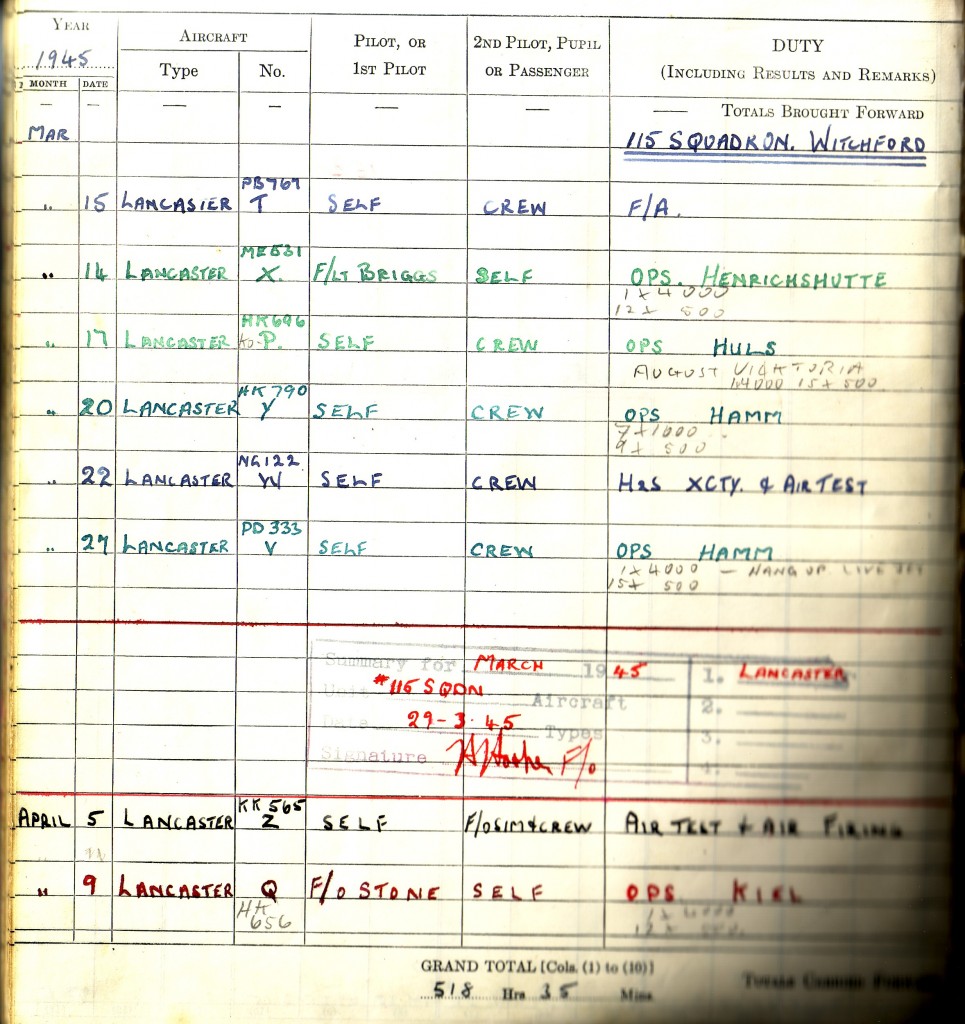 YEAR
1945
AIRCRAFT
PILOT, OR
1ST PILOT
2ND PILOT, PUPIL
OR PASSENGER
DUTY
(INCLUDING RESULTS AND REMARKS)
MONTH DATE Type No.
— — — — — — — TOTALS BROUGHT FORWARD
MAR 115 SQUADRON. WITCHFORD
PB767
" 15 LANCASTER T SELF CREW F/A.
ME531
" 14 LANCASTER X. F/LT BRIGGS SELF OPS. HENRICHSHUTTE
1 x 4000
12 x 500
HK696
" 17 LANCASTER KO-P. SELF CREW OPS HULS
AUGUST VICKTORIA
1x4000 15 x 500
HK790
" 20 LANCASTER Y SELF CREW OPS HAMM
7 x 1000
9 x 500
NG122
" 22 LANCASTER W SELF CREW H2S XCTY. & AIR TEST
PD333
" 27 LANCASTER V SELF CREW OPS HAMM
1 x 4000 — HANG UP LIVE
15 x 500
Summary for MARCH 1945 1. LANCASTER
Unit #115 SQDN Aircraft 2.
Date 29-3-45 Types 3.
Signature F/O 4.
KK565
APRIL 5 LANCASTER Z SELF F/O SIM & CREW AIR TEST & AIR FIRING
" 9 LANCASTER Q F/O STONE SELF OPS KIEL
HK
656
1 x 4000
12 x 500
GRAND TOTAL [Cols. (1) to (10)]
518 Hrs 35 Mins
TOTALS CARRIED FORWARD